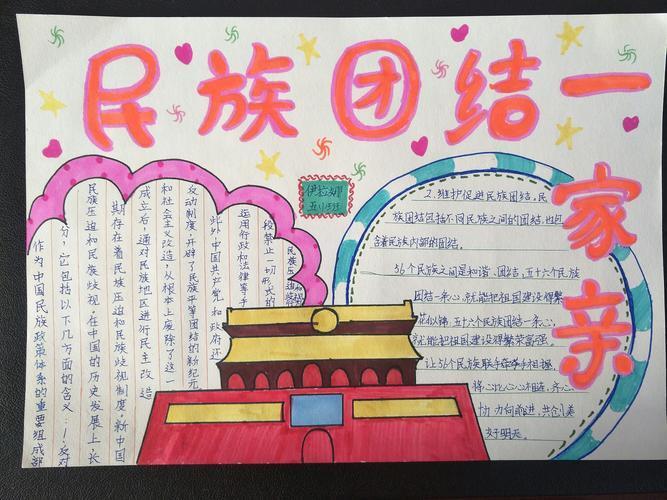 民族团结一家亲
伊拉娜
作为中国民族政策体系的重要组成部
分,它包括以下几方面的含义:1.反对
民族压迫和民族歧视,在中国的历史发展上,长
期存在着民族压迫和民族歧视制度,新中国
成立后,通对民族地区进行民主改造
和社会主义改造,从根本上废除了这一
反动制度,开辟了民族平等团结的新纪元
此外中国共产党和政府还
运用行政和法律等手
段禁止一切形式的
民族压迫
2.维护促进民族团结,民
族团结包括不同民族之间的团结,也包
含着民族内部的团结。
56个民族之间是和谐、团结,五十六个民族
团结一条心,就能把祖国建设得繁
花似锦,五十六个民族团结一条心,
就能把祖国建设得繁荣富强。
让56个民族联手牵手相握,
将心比心心相连,齐心
协力向前进,共创美
好明天。